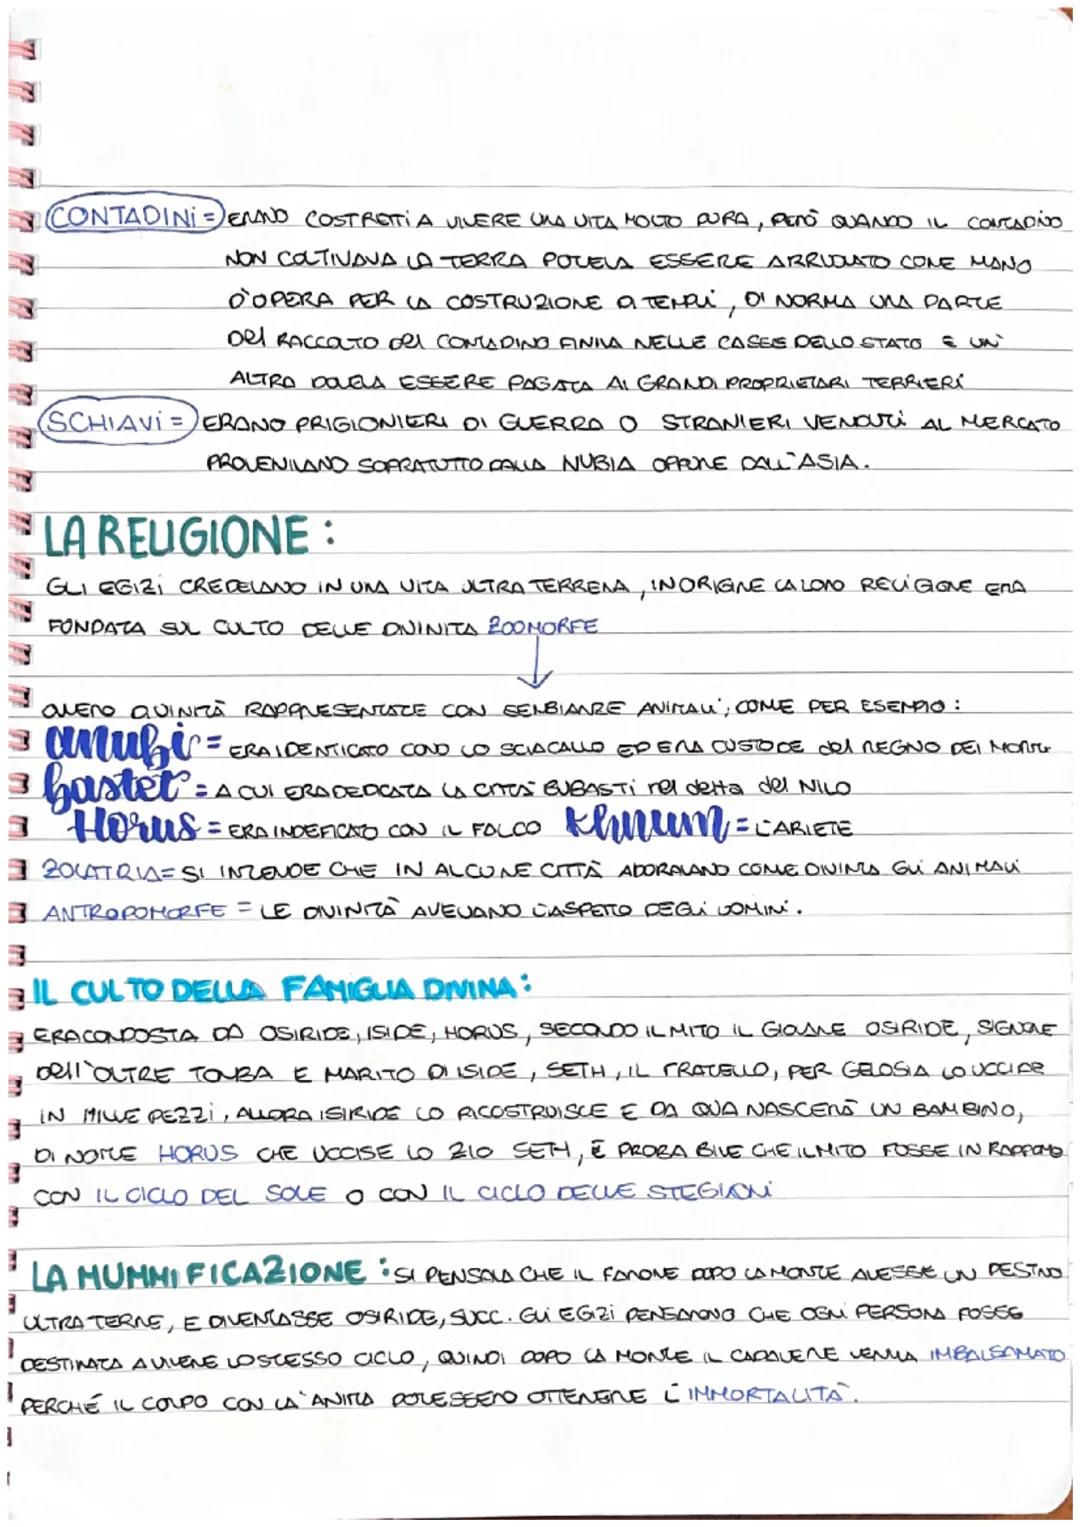 CONTADINI = ERANO COSTRETTI A VIVERE UNA VITA MOLTO DURA, PERÒ QUANDO IL CONTADINO
NON COLTIVAVA LA TERRA POTEVA ESSERE ARRUOLATO COME MANO
D'OPERA PER LA COSTRUZIONE DI TEMPLI, DI NORMA UNA PARTE
Del RACCOLTO Del CONTADINO FINIVA NELLE CASSE DELLO STATO E UN'
ALTRA DOVEVA ESSERE PAGATA AI GRANDI PROPRIETARI TERRIERI
SCHIAVI = ERANO PRIGIONIERI DI GUERRA O STRANIERI VENDUTI AL MERCATO
PROVENIVANO SOPRATUTTO DALLA NUBIA OPPURE DALL'ASIA.
LA RELIGIONE:
GLI EGIZI CREDEVANO IN UNA VITA ULTRA TERRENA, IN ORIGINE LA LORO RELIGIONE ERA
FONDATA SUL CULTO DELLE DIVINITÀ ZOOMORFE
OVERO DIVINITÀ RAPPRESENTATE CON SEMBIANZE ANIMALI, COME PER ESEMPIO:
anubi = ERA IDENTICATO COND LO SCIACALLO ED ERA CUSTODE del REGNO DEI MORTI
bastet = A CUI ERA DEDICATA LA CITTÀ BUBASTI nel delta del NILO
Horus = ERA INDEFICATO CON IL FALCO Khnum = L'ARIETE
ZOLATRIA = SI INTENDE CHE IN ALCUNE CITTÀ ADORAVANO COME DIVINTÀ GLI ANIMALI
ANTROPOMORFE = LE DIVINITÀ AVEVANO L'ASPETTO DEGLI UOMINI.
IL CULTO DELLA FAMIGLIA DIVINA:
ERA CONPOSTA DA OSIRIDE, ISIDE, HORUS, SECONDO IL MITO IL GIOVANE OSIRIDE, SIGNORE
Dell'OLTRE TOMBA E MARITO DI ISIDE, SETH, IL FRATELLO, PER GELOSIA LO UCCIDE
IN MILLE PEZZI, ALLORA ISIRIDE LO RICOSTRUISCE E DA QUA NASCERÀ UN BAMBINO,
DI NOME HORUS CHE UCCISE LO ZIO SETH, È PROBABILE CHE IL MITO FOSSE IN RAPPORTO
CON IL CICLO DEL SOLE O CON IL CICLO DELLE STEGIONI
LA MUMMIFICAZIONE: SI PENSAVA CHE IL FARAONE DOPO LA MORTE AVESSE UN DESTINO
ULTRA TERRE, E DIVENTASSE OSIRIDE, SUCC. GLI EGIZI PENSARONO CHE OGNI PERSONA FOSSE
DESTINATA A VIVERE LO STESSO CICLO, QUINDI DOPO LA MORTE IL CADAVERE VENIVA IMBALSAMATO
PERCHÉ IL CORPO CON LA'ANIMA POTESSERO OTTENERE L'IMMORTALITÀ.